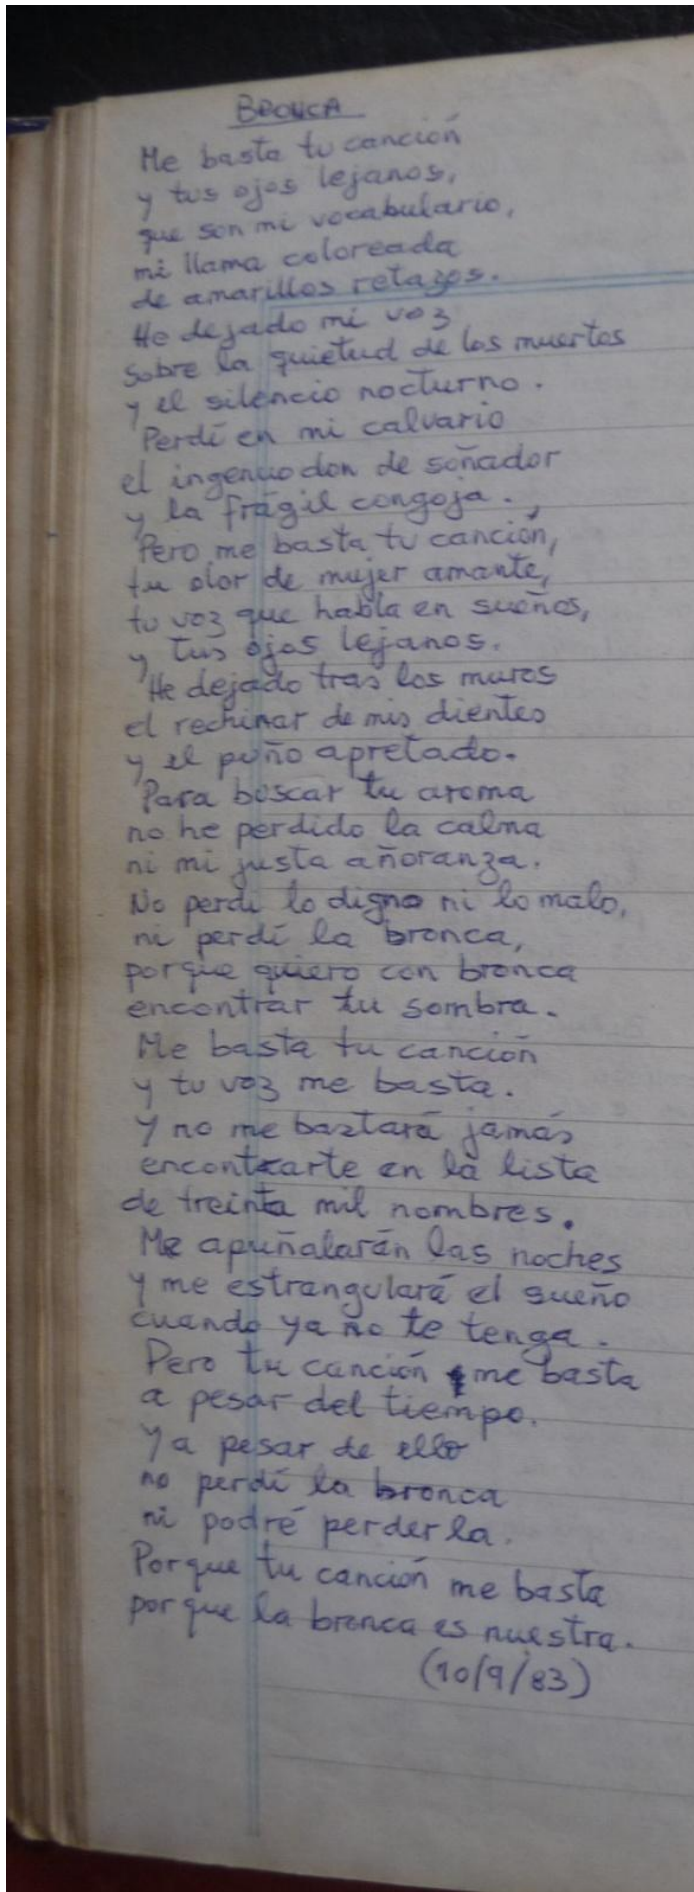 BRONCA
Me basta tu canción
y tus ojos lejanos,
que son mi vocabulario,
mi llama coloreada
de amarillos retazos.
He dejado mi voz
sobre la quietud de los muertos
y el silencio nocturno.
Perdí en mi calvario
el ingenuo don de soñador
y la frágil congoja.
Pero me basta tu canción,
tu olor de mujer amante,
tu voz que habla en sueños,
y tus ojos lejanos.
He dejado tras los muros
el rechinar de mis dientes
y el puño apretado.
Para buscar tu aroma
no he perdido la calma
ni mi justa añoranza.
No perdí lo digno ni lo malo,
ni perdí la bronca,
porque quiero con bronca
encontrar tu sombra.
Me basta tu canción
y tu voz me basta.
Y no me bastará jamás
encontrarte en la lista
de treinta mil nombres.
Me apuñalarán las noches
y me estrangulará el sueño
cuando ya no te tenga.
Pero tu canción me basta
a pesar del tiempo.
Y a pesar de ello
no perdí la bronca
ni podré perderla.
Porque tu canción me basta
porque la bronca es nuestra.
(10/9/83)